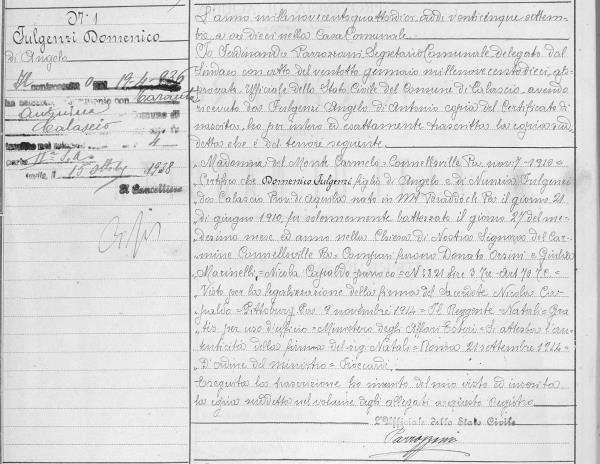 N° 1
Fulgenzi Domenico
di Angelo
Il 19-4-936
ha matrimonio con Caranfa
Calascio
4
parte IIª S. A
15 1938
Il Cancelliere
L'anno millenovecentoquattordici, addì venticinque settem-
bre, a ore dieci nella Casa Comunale.
Io Ferdinando Parrozzani Segretario Comunale delegato dal
Sindaco con atto del ventotto gennaio millenovecentodieci, ap-
provato, Uffiziale dello Stato Civile del Comune di Calascio, avendo
ricevuto da Fulgenzi Angelo di Antonio copia del Certificato di
nascita, ho per intero ed esattamente trascritta la copia sud-
detta che è del tenore seguente.
"Madonna del Monte Carmelo = Connellsville Pa. nov. 7-1910=
"Certifico che Domenico Fulgenzi figlio di Angelo e di Nunzia Fulgenzi
"da Calascio Prov. di Aquila nato in Mt Braddock Pa il giorno 21
"di giugno 1910, fu solennemente battezzato il giorno 27 del me-
"desimo mese ed anno nella Chiesa di Nostra Signora del Car-
"mine Connellsville Pa = Compari furono Donato Orsini e Giulia
"Marinelli = Nicola Capraldo parroco = N 8821 lire 3 70 = Art 70 T. C. =
"Visto per la legalizzazione della firma del Sacerdote Nicola Ca-
"praldo = Pittsburg Pa 9 novembre 1914 = Il Reggente = Natali = Gra-
"tis per uso d'ufficio = Ministero degli Affari Esteri = Si attesta l'au-
"tenticità della firma del sig. Natali = Roma 21 settembre 1914 =
"D'ordine del ministro =
Eseguita la trascrizione ho munito del mio visto ed inserita
la copia suddetta nel volume degli allegati a questo Registro.
L'Uffiziale dello Stato Civile
Parrozzani